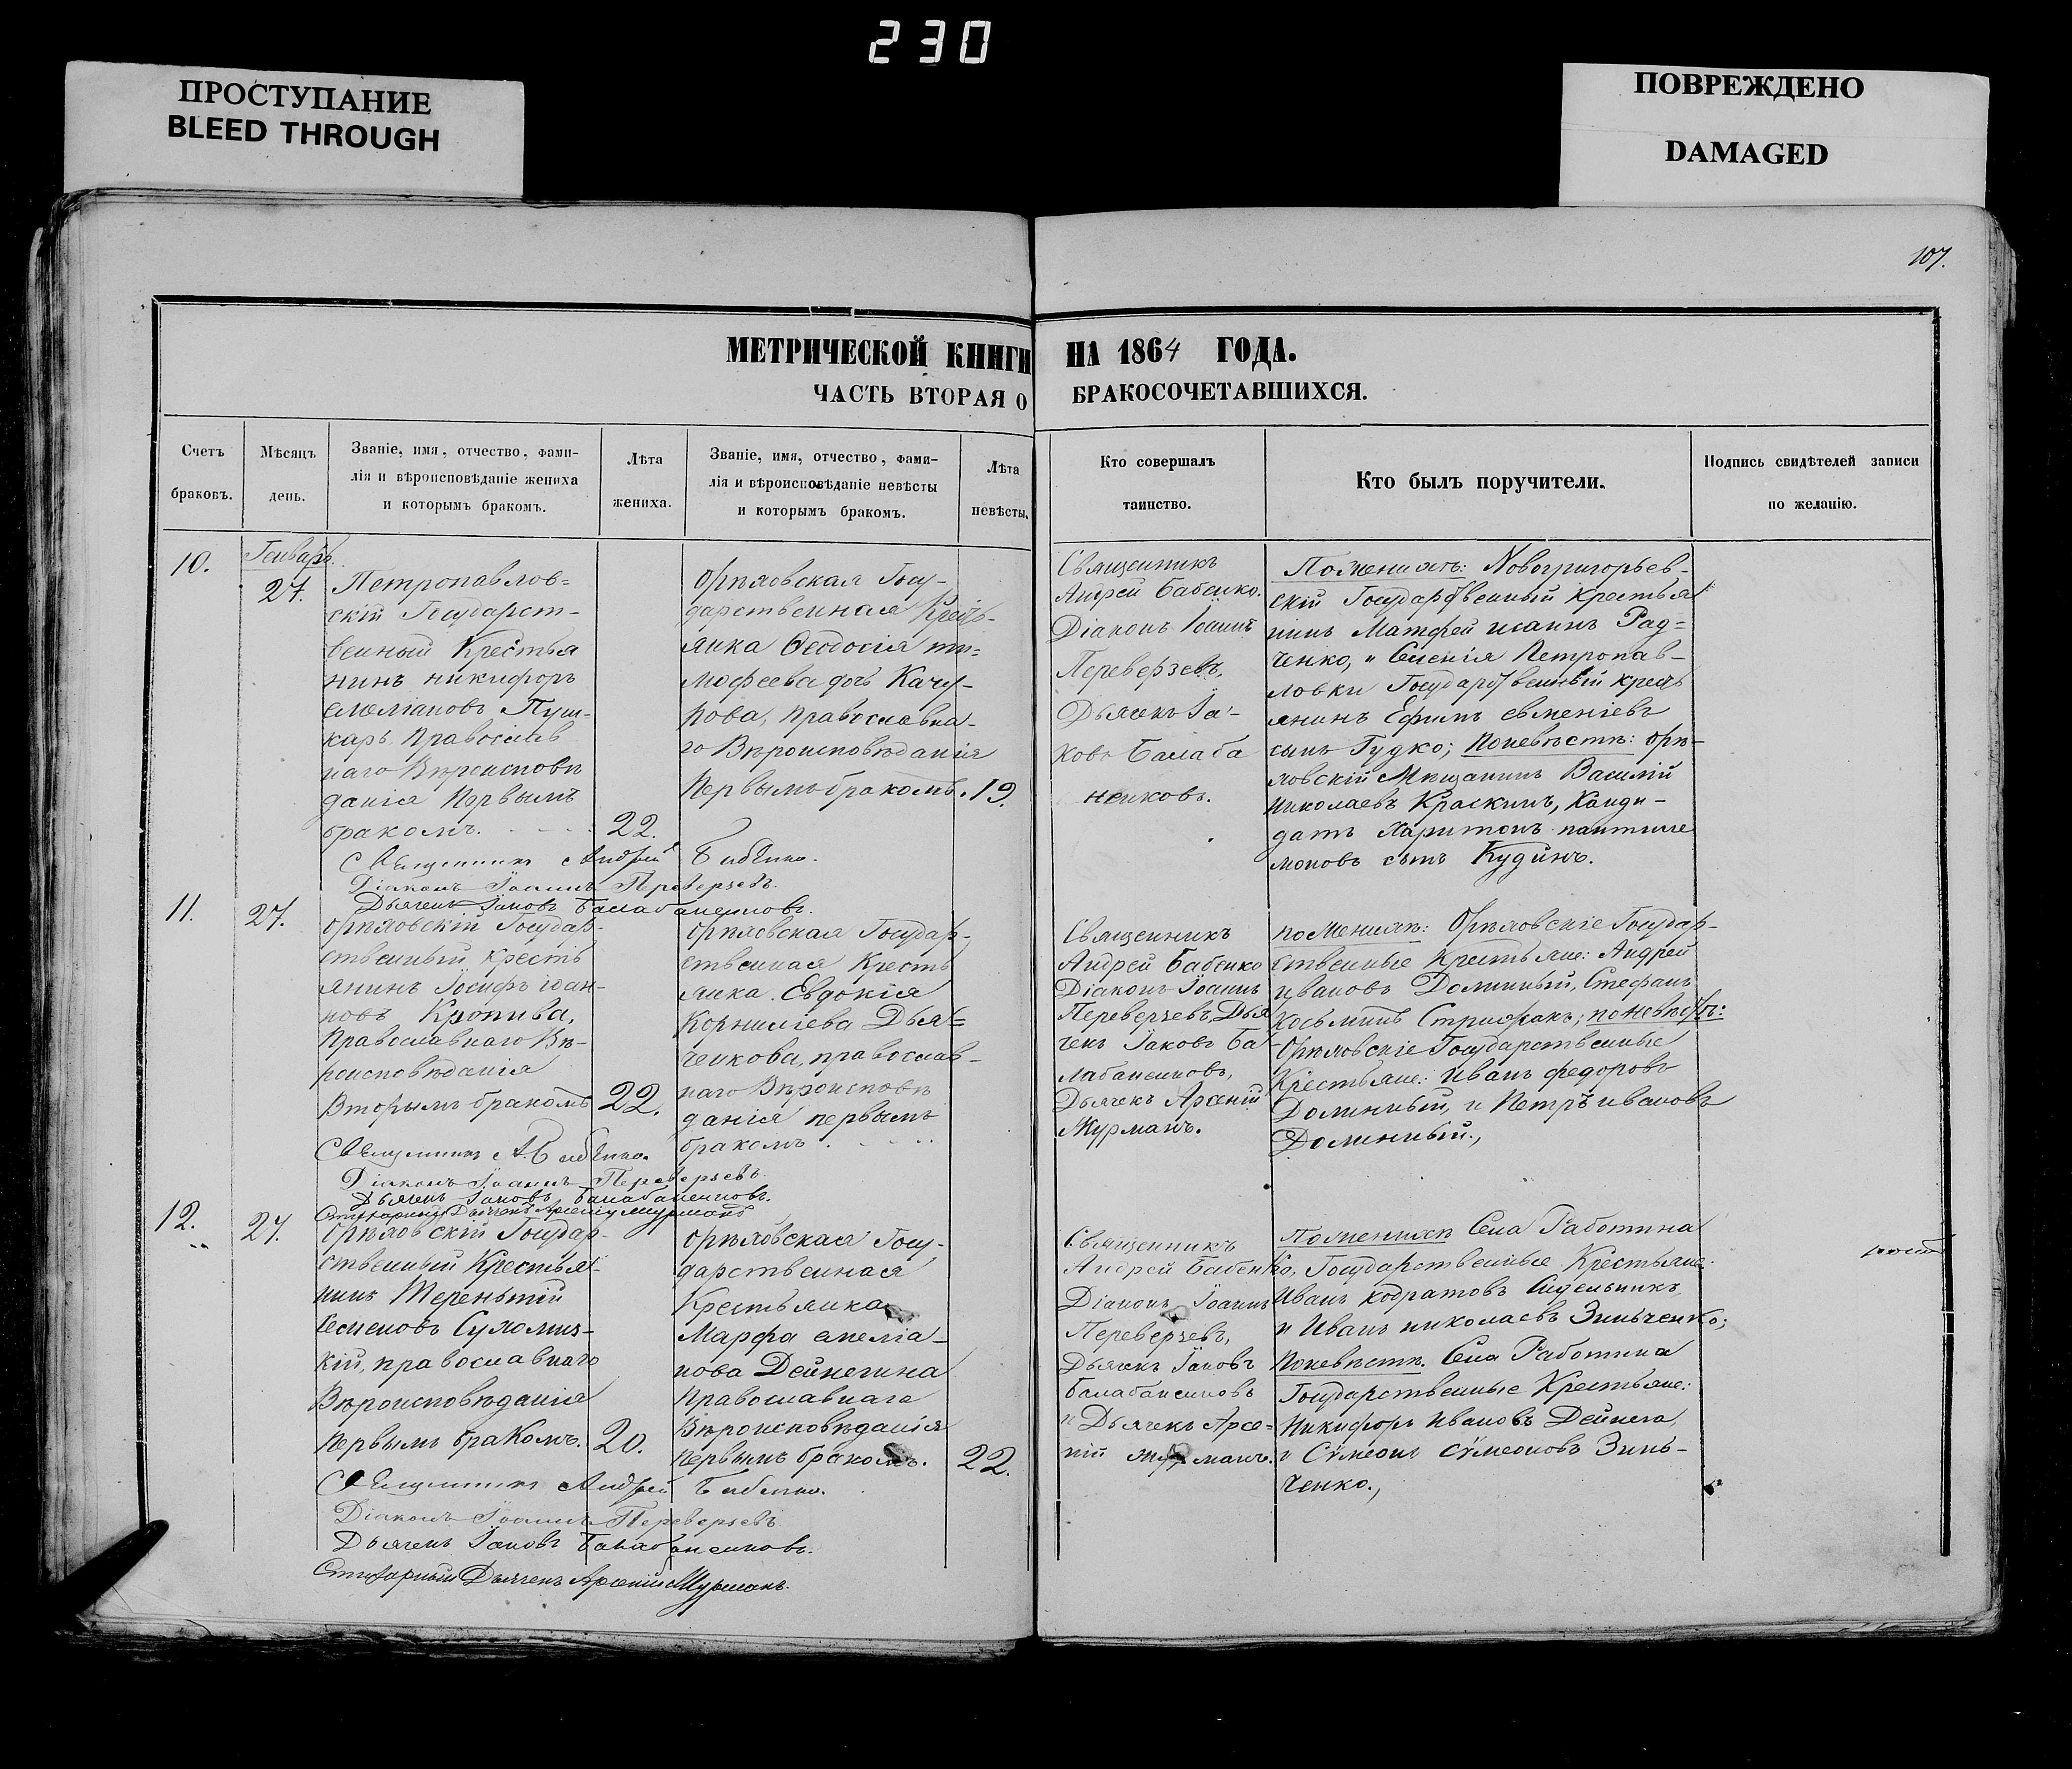 230
ПРОСТУПАНИЕ
BLEED THROUGH
ПОВРЕЖДЕНО
DAMAGED
107.
МЕТРИЧЕСКОЙ КНИГИ НА 1864 ГОДА.
ЧАСТЬ ВТОРАЯ О БРАКОСОЧЕТАВШИХСЯ.
Счетъ
браковъ.
Мѣсяцъ
день.
Званіе, имя, отчество, фами-
лія и вѣроисповѣданіе жениха
и которымъ бракомъ.
Лѣта
жениха.
Званіе, имя, отчество, фами-
лія и вѣроисповѣданіе невѣсты
и которымъ бракомъ.
Лѣта
невѣсты.
Кто совершалъ
таинство.
Кто былъ поручители.
Подпись свидѣтелей записи
по желанію.
10.
Генварь
27.
Петропавлов=
скій Государст-
венный Крестья
нинъ Никифоръ
емеліановъ Пуш-
карь Православ
наго Вѣроисповѣ
данія Первымъ
бракомъ.
22.
Орѣловская Госу-
дарственная Крестъ-
янка Ѳеодосія ти=
мофеева дочь Качу-
рова, Православна-
го Вѣроисповѣданія
Первымъ бракомъ.
19.
Священникъ
Андрей Бабенко.
Діаконъ Іоаннъ
Переверзевъ,
Дьячекъ Іа-
ковъ Балаба
ненковъ.
По женихѣ: Новогригорьев-
скій Государственный крестья
нинъ Матфей иоаннъ Рад=
ченко, и Селенія Петропав-
ловки Государственный крестъ
янинъ Ефимъ евменіевъ
сынъ Гудко; По невѣстѣ: Орѣ-
ловскій Мѣщанинъ Василій
Николаевъ Краскинъ, Канди-
датъ Харитонъ пантиле
моновъ сынъ Кудинъ.
Священникъ Андрей Бабенко.
Діаконъ Іоаннъ Переверзевъ.
Дьячекъ Іаковъ Балабаненковъ.
11.
27.
Орѣловскій Государ-
ственный Кресть
янинъ Іосифъ іоан-
новъ Кропива,
Православнаго Вѣ-
роисповѣданія
Вторымъ бракомъ
22.
Орѣловская Государ-
ственная Кресть
янка Евдокія
Корниліева Дья=
ченкова, православ-
наго Вѣроисповѣ
данія первымъ
бракомъ.
Священникъ
Андрей Бабенко
Діаконъ Іоаннъ
Переверзевъ, Дья
чекъ Іаковъ Ба
лабаненковъ,
Дьячекъ Арсеній
Журманъ.
по женихѣ: Орѣловскіе Государ-
ственные Крестьяне: Андрей
ивановъ Долинный, Стефанъ
Косьминъ; по невѣстѣ:
Орѣловскіе Государственные
Крестьяне: Иванъ федоровъ
Долинный, и Петръ ивановъ
Долинный.,
Священникъ А. Бабенко.
Діаконъ Іоаннъ Переверзевъ.
Дьячекъ Іаковъ Балабаненковъ.
Стихарный Дьячекъ Арсеній Журманъ
12.
27.
Орѣловскій Государ-
ственный Крестья-
нинъ Терентій
Семеновъ Сухомлиз-
кій, православнаго
Вѣроисповѣданія
Первымъ браКомъ.
20.
Орѣловская Госу-
дарственная
Крестьянка
Марфа емеліа-
нова Дейнегина
Православнаго
Вѣроисповѣданія
Первымъ бракомъ.
22.
Священникъ
Андрей Бабенко,
Діаконъ Іоаннъ
Переверзевъ,
Дьячекъ Іаковъ
Балабаненковъ
и Дьячекъ Арсе=
ній Журманъ.
По женихѣ Села Работина
Государственные Крестьяне:
Иванъ кодратовъ Сидельникъ,
и Иванъ николаевъ Зинченко;
По невѣстѣ. Села Работина
Государственные Крестьяне:
Никифоръ Ивановъ Дейнега,
и Сѵмеонъ сѵмеоновъ Зинь-
ченко.,
Священникъ Андрей Бабенко.
Діаконъ Іоаннъ Переверзевъ
Дьячекъ Іаковъ Балабаненковъ.
Стихарный Дьячекъ Арсеній Журманъ.